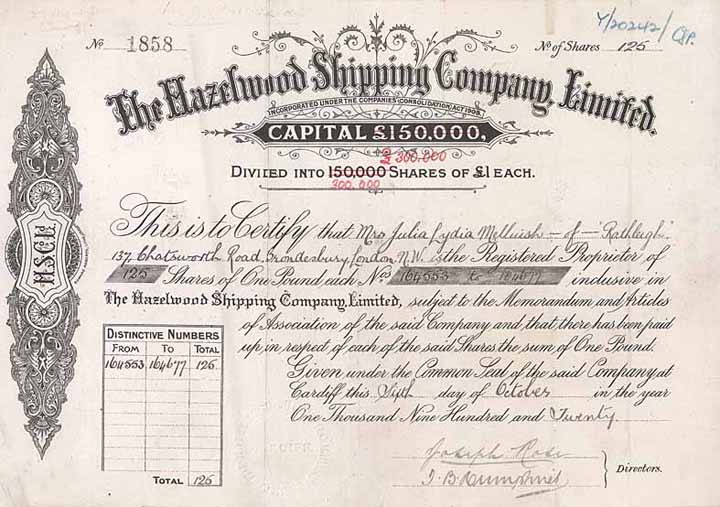 No 1858
Y/20242/
No of Shares 125
The Hazelwood Shipping Company, Limited.
INCORPORATED UNDER THE COMPANIES (CONSOLIDATION) ACT 1908.
CAPITAL £150,000,
£ 300.000
DIVIDED INTO 150,000 SHARES OF £1 EACH.
300.000
This is to Certify that Mrs Julia Lydia Melluish of "Rathleigh"
137, Chatsworth Road, Brondesbury, London. N.W. is the Registered Proprietor of
125 Shares of One Pound each Nos 164553 to 164677 inclusive in
The Hazelwood Shipping Company, Limited, subject to the Memorandum and Articles
of Association of the said Company and that there has been paid
up in respect of each of the said Shares the sum of One Pound.
Given under the Common Seal of the said Company at
Cardiff this day of October in the year
One Thousand Nine Hundred and Twenty.
H.S.C.Ld.
DISTINCTIVE NUMBERS
FROM TO TOTAL
164553 164677 125
TOTAL 125
Joseph Rose
J. B. Humphries
Directors.